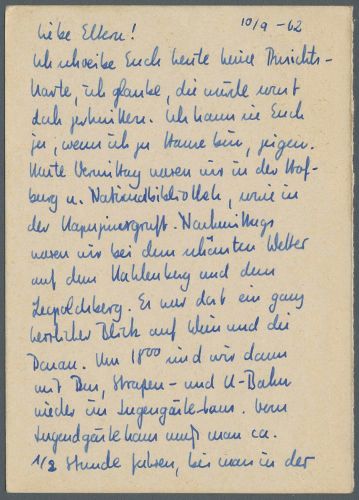 10/9 - 62
Liebe Eltern!
Ich schreibe Euch heute keine Ansichts-
karte, ich glaube, die würde sonst
doch zerknittern. Ich kann sie Euch
ja, wenn ich zu Hause bin, zeigen.
Heute Vormittag waren wir in der Hof-
burg u. Nationalbibliothek, sowie in
der Kapuzinergruft. Nachmittags
waren wir bei dem schönsten Wetter
auf dem Kahlenberg und dem
Leopoldsberg. Es war dab ein ganz
herrlicher Blick auf Wien und die
Donau. Um 1800 sind wir dann
mit Bus, Strassen- und U-Bahn
wieder im Jugengästehaus. Vom
Jugendgästehaus muß man ca.
1/2 Stunde fahren, bis man in der